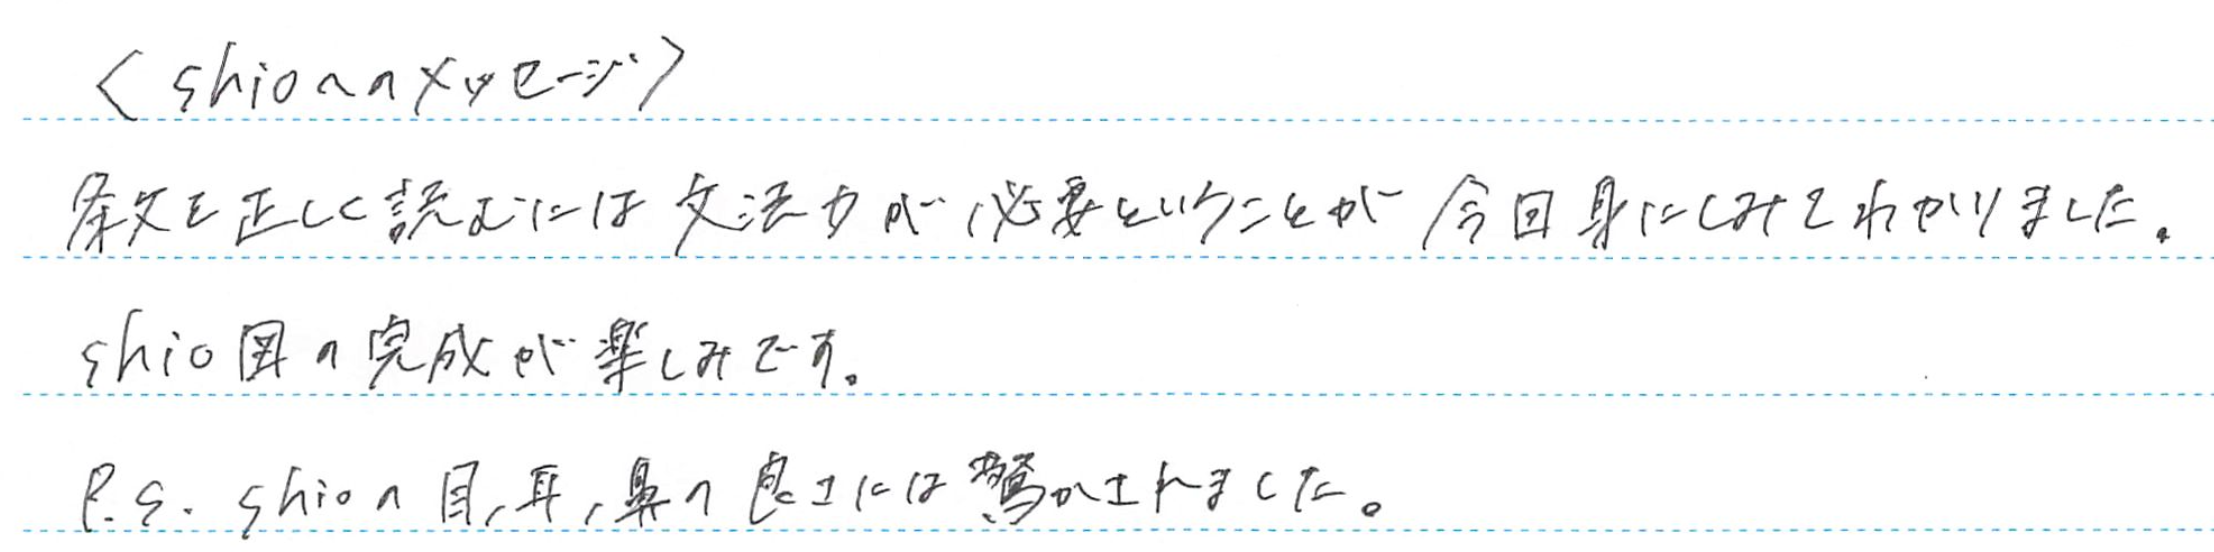 〈shioへのメッセージ〉
条文を正しく読むには文法力が必要ということが今回身にしみてわかりました。
shio図の完成が楽しみです。
P.S. shioの目,耳,鼻の良さには驚かされました。